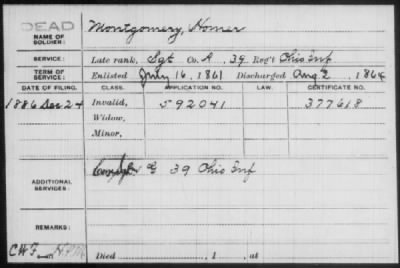 DEAD
NAME OF SOLDIER: Montgomery, Homer
SERVICE: Late rank, Sgt Co. A, 39 Reg't Ohio Inf
TERM OF SERVICE: Enlisted July 16, 1861 Discharged Aug 2, 1864
DATE OF FILING. CLASS. APPLICATION NO. LAW. CERTIFICATE NO.
1886 Dec 24 Invalid, 592041 377618
Widow,
Minor,
ADDITIONAL SERVICES: G 39 Ohio Inf
REMARKS:
Died , 1 , at